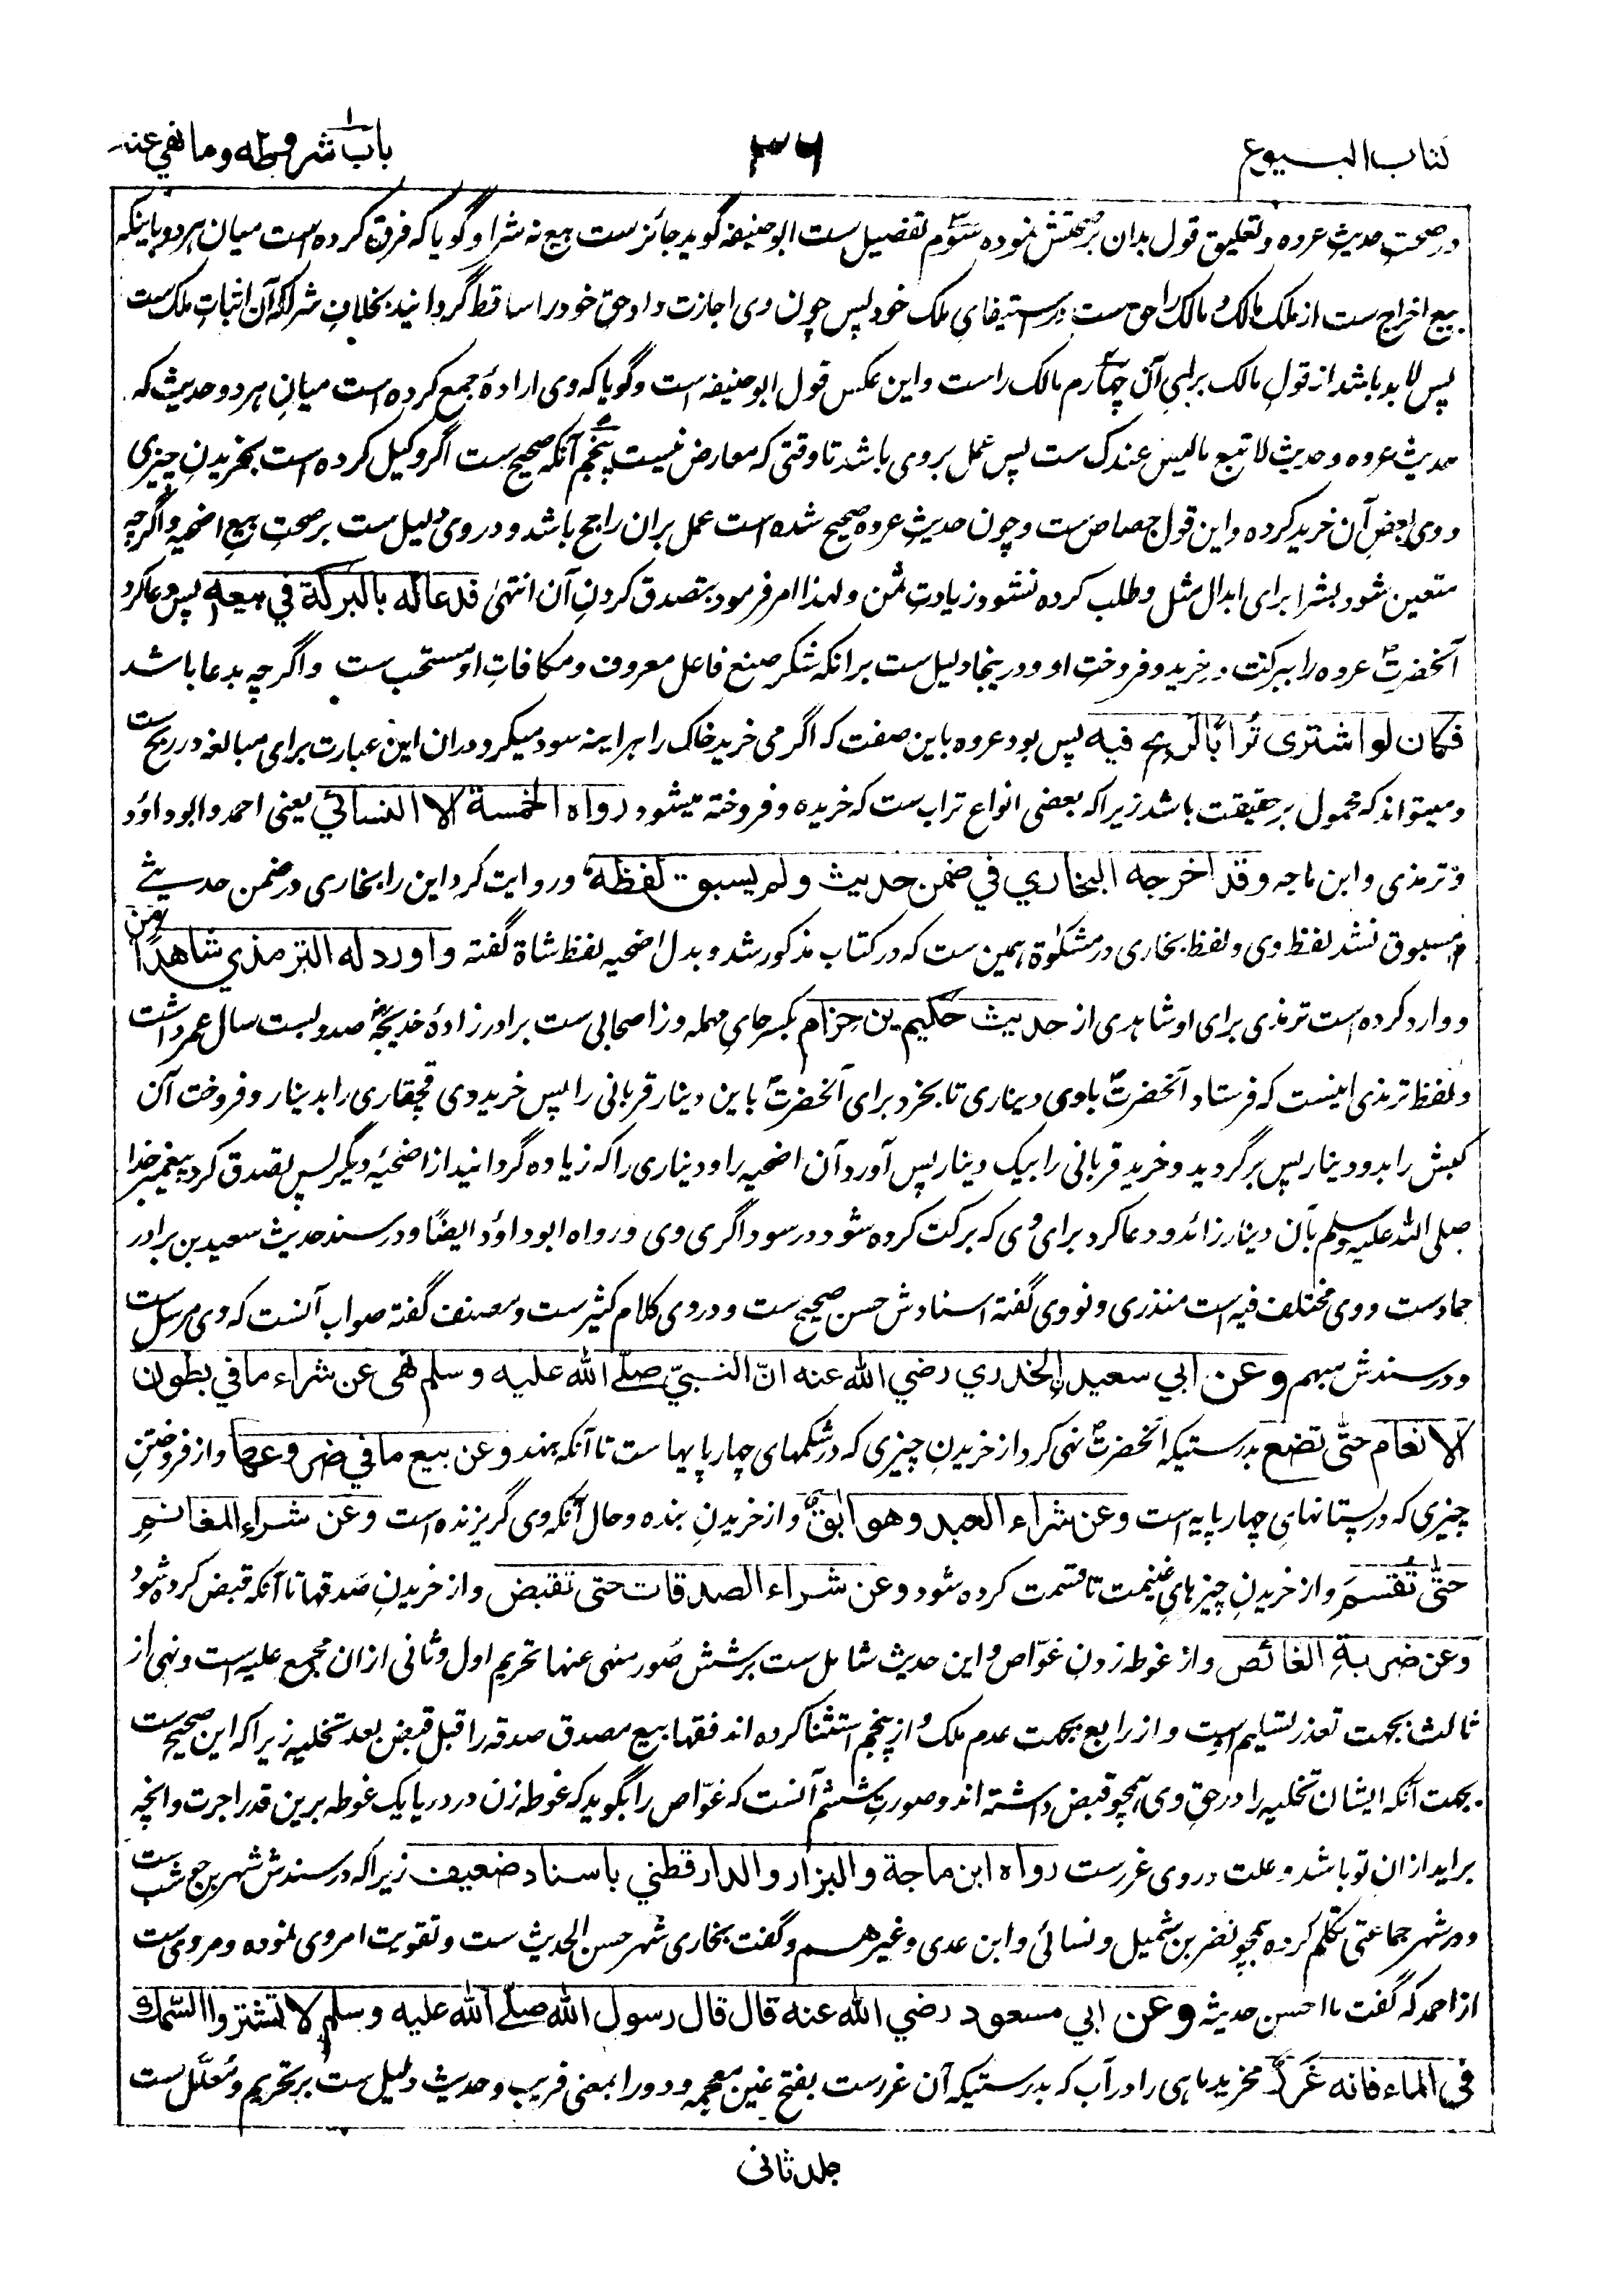 کتاب البیوع
۳۶
باب شروطه وما نهي عنه
در صحتِ حدیثِ عروه و تعلیق قول بدان بر صحتش نموده سوم تفصیل ست ابوحنیفه گوید جائز ست بیع نه شرا و گویا که فرق کرده است میان هر دو باینکه
بیع اخراج ست از ملک مالک و مالک را حق ست در استیفای ملک خود پس چون وی اجازت داد حق خود را ساقط گردانید بخلافِ شرا که آن اثباتِ ملک ست
پس لابد باشد از قولِ مالک برای آن چهارم مالک راست و این عکس قول ابوحنیفه است و گویا که وی ارادهٔ جمع کرده است میانِ هر دو حدیث که
حدیث عروه و حدیث لا تبع ما لیس عندک ست پس عمل بر وی باشد تا وقتی که معارض نیست پنجم آنکه صحیح ست اگر وکیل کرده است بخریدنِ چیزی
و وی بعضِ آن خرید کرده و این قول جصاص ست و چون حدیثِ عروه صحیح شده است عمل بران راجح باشد و در وی دلیل ست بر صحتِ بیعِ اضحیه و اگرچه
متعین شود بشرا برای ابدال مثل و طلب کرده نشود زیادتِ ثمن و لهذا امر فرمود بتصدق کردنِ آن انتهی فدعا له بالبرکة في بیعه پس دعا کرد
آنحضرتؐ عروه را ببرکت در خرید و فروختِ او و درینجا دلیل ست برانکه شکر صنع فاعل معروف و مکافاتِ او مستحب ست و اگرچه بدعا باشد
فکان لو اشتری ترابًا لربح فیه پس بود عروه باین صفت که اگر می خرید خاک را هر اینه سود میکرد دران این عبارت برای مبالغه در ربح ست
و میتواند که محمول بر حقیقت باشد زیرا که بعضی انواع تراب ست که خریده و فروخته میشود رواه الخمسة الا النسائي یعنی احمد و ابو داؤد
و ترمذی و ابن ماجه وقد اخرجه البخاري في ضمن حدیث ولم یسبق لفظه و روایت کرد این را بخاری در ضمن حدیثے
و مسبوق نشد لفظ وی و لفظ بخاری در مشکوٰة همین ست که در کتاب مذکور شد و بدل اضحیه لفظ شاة گفته واورد له الترمذي شاهدًا من
و وارد کرده است ترمذی برای او شاهدی از حدیث حکیم بن حزام بکسر حای مهمله و زا صحابی ست برادر زادهٔ خدیجه صد و بست سال عمر داشت
و لفظ ترمذی اینست که فرستاد آنحضرتؐ با وی دیناری تا بخرد برای آنحضرتؐ باین دینار قربانی را پس خرید وی قچقاری را بدینار و فروخت آن
کبش را بدو دینار پس برگردید و خرید قربانی را بیک دینار پس آورد آن اضحیه را و دیناری را که زیاده گردانید از اضحیهٔ دیگر پس تصدق کرد پیغمبر خدا
صلی الله علیه وسلم بآن دینار زائد و دعا کرد برای وی که برکت کرده شود در سوداگری وی و رواه ابو داؤد ایضًا و در سند حدیث سعید بن برادر
حماد ست و وی مختلف فیه است منذری و نووی گفته اسنادش حسن صحیح ست و در وی کلام کثیر ست و مصنف گفته صواب آنست که وی مرسل ست
و در سندش مبهم وعن ابي سعید الخدري رضي الله عنه انّ النبيّ صلّے الله علیه وسلم نهی عن شراء ما في بطون
الانعام حتّٰی تضع بدرستیکه آنحضرتؐ نهی کرد از خریدنِ چیزی که در شکمهای چارپایها ست تا آنکه بنهند وعن بیع ما في ضروعها و از فروختنِ
چیزی که در پستانهایِ چارپایه است وعن شراء العبد وهو ابق و از خریدنِ بنده و حال آنکه وی گریزنده است وعن شراء المغانم
حتّٰی تُقسم و از خریدنِ چیزهایِ غنیمت تا قسمت کرده شود وعن شراء الصدقات حتی تقبض و از خریدنِ صدقها تا آنکه قبض کرده شود
وعن ضربةِ الغائص و از غوطه زدنِ غوّاص و این حدیث شامل ست بر شش صُور منهی عنها تحریم اول و ثانی ازان مجمع علیه است و نهی از
ثالث بجهت تعذر تسلیم است و از رابع بجهت عدم ملک و از پنجم استثنا کرده اند فقها بیع مصدق صدقه را قبل قبض بعد تخلیه زیرا که این صحیح ست
بجهت آنکه ایشان تخلیه را در حقِ وی همچو قبض داشته اند و صورتِ ششم آنست که غوّاص را بگوید که غوطه زن در دریا یک غوطه برین قدر اجرت و آنچه
براید ازان تو باشد و علت در وی غرر ست رواه ابن ماجة والبزار والدارقطني باسناد ضعیف زیرا که در سندش شهر بن حوشب ست
و در شهر جماعتی تکلم کرده همچو نضر بن شمیل و نسائی و ابن عدی و غیرهم و گفت بخاری شهر حسن الحدیث ست و تقویت امر وی نموده و مروی ست
از احمد که گفت ما احسن حدیثه وعن ابي مسعود رضي الله عنه قال قال رسول الله صلّے الله علیه وسلم لا تشتروا السّمك
في الماء فانه غَرر مخرید ماهی را در آب که بدرستیکه آن غرر ست بفتح غین معجمه و دو را بمعنی فریب و حدیث دلیل ست بر تحریم و مُعلّل ست
جلد ثانی